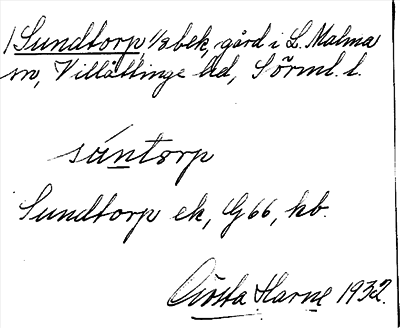 1 Sundtorp, 1/2 bek, gård i L. Malma
sn, Villåttinge hd, Sörml. l.
sántorp
Sundtorp ek, G66, kb.
Gösta Harne 1932.